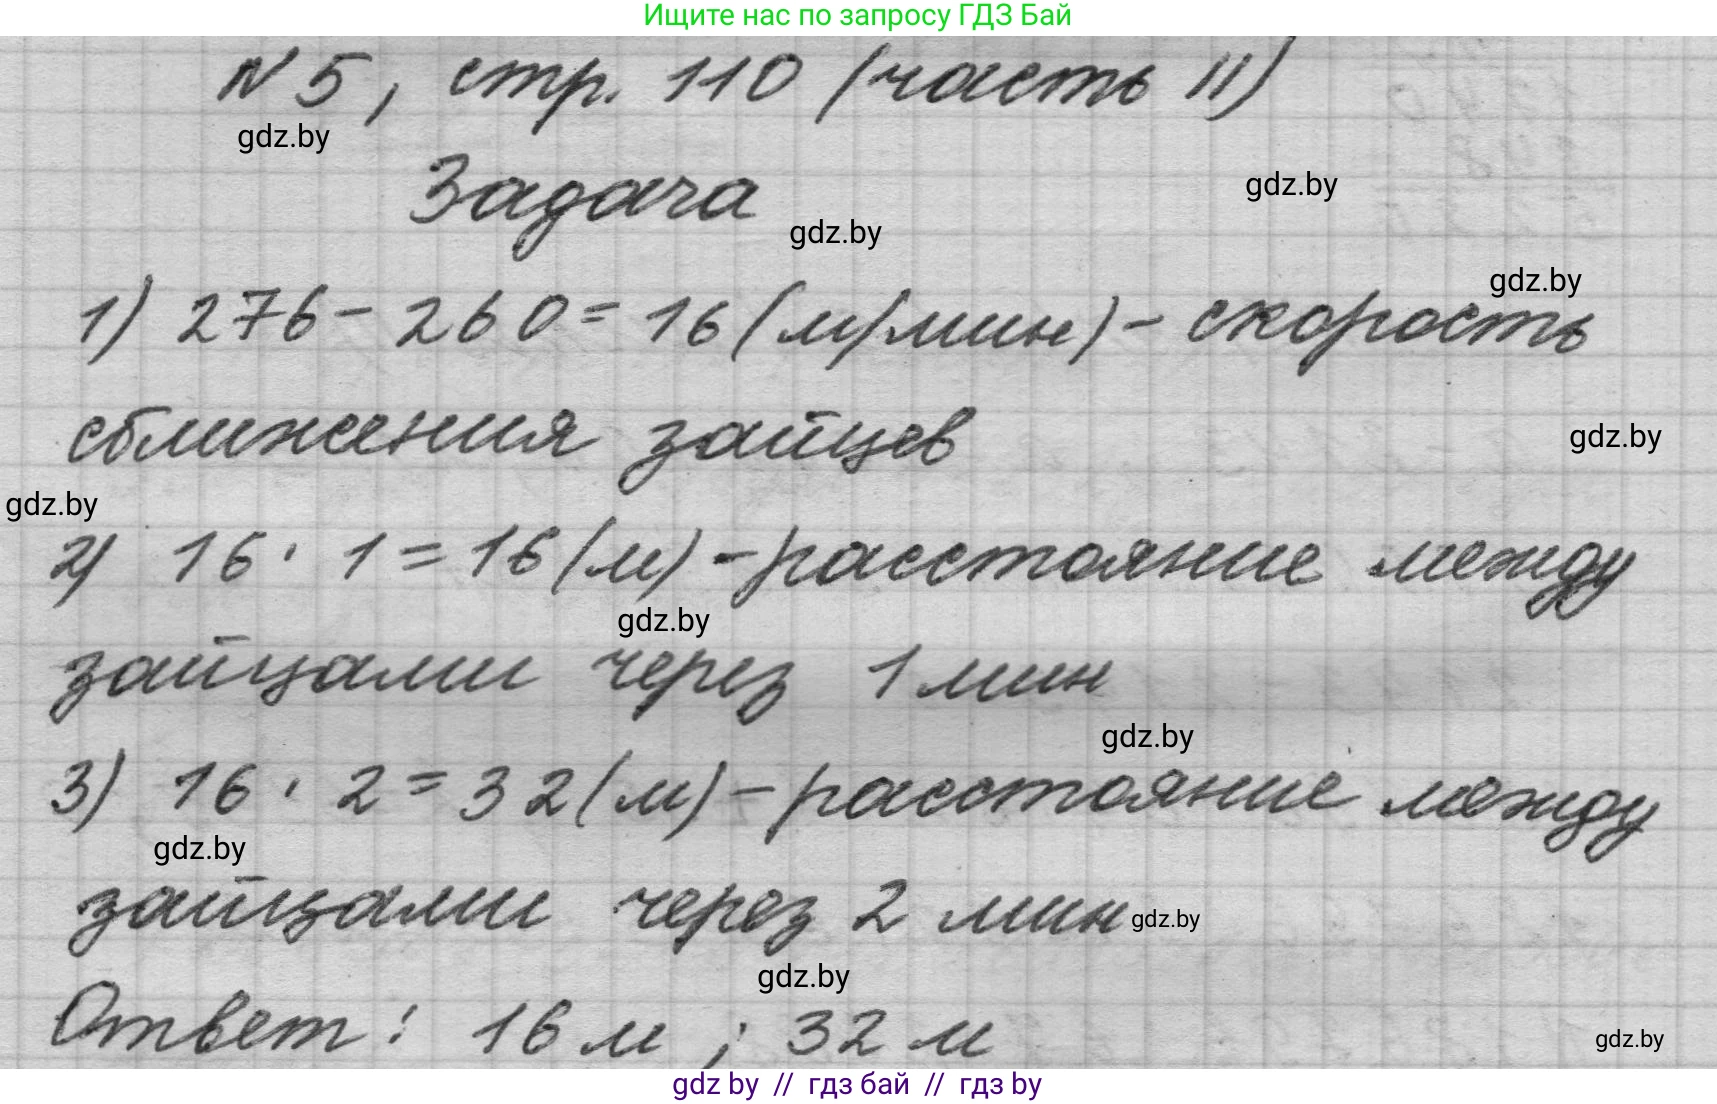 Ищите нас по запросу ГДЗ Бай
N 5, стр. 110 (часть II)
gdz.by
Задача
gdz.by
gdz.by
gdz.by
1) 276 - 260 = 16 (м/мин) - скорость
сближения зайцев
gdz.by
gdz.by
2) 16 · 1 = 16 (м) - расстояние между
gdz.by
зайцами через 1 мин
gdz.by
3) 16 · 2 = 32 (м) - расстояние между
gdz.by
зайцами через 2 мин
gdz.by
gdz.by
Ответ: 16 м ; 32 м
gdz.by
gdz by // гдз бай // гдз by